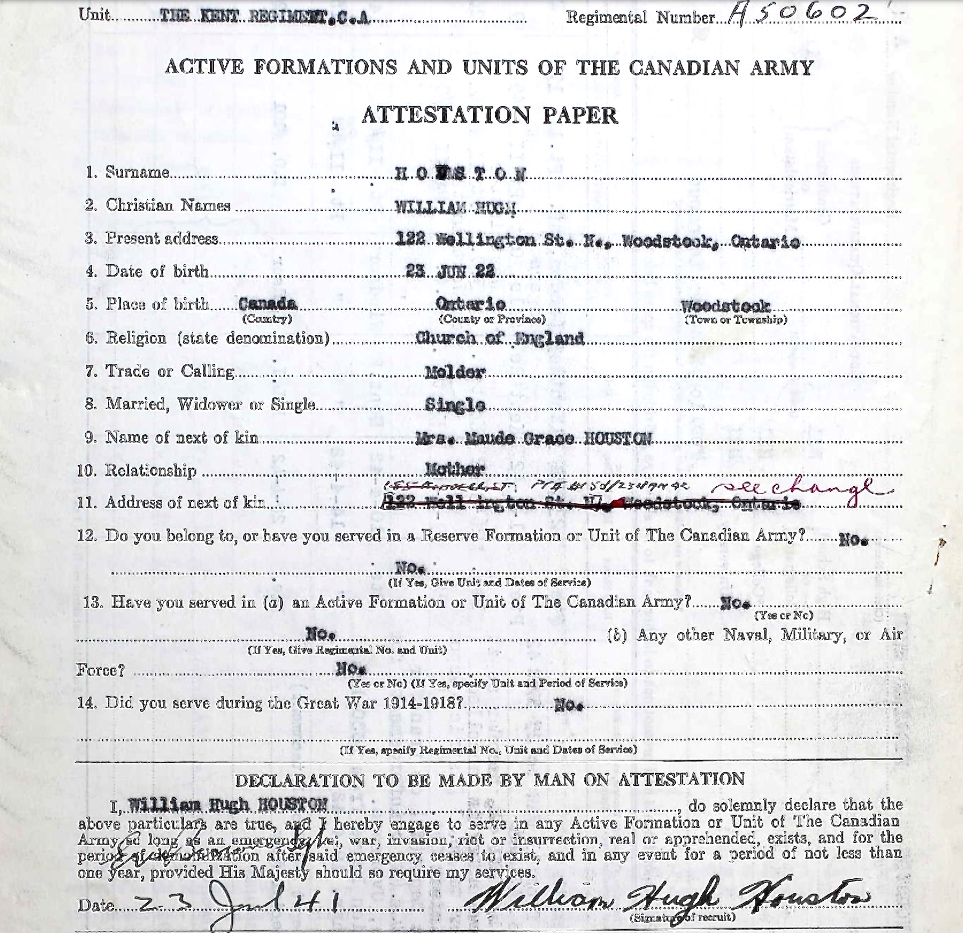 Unit THE KENT REGIMENT.C.A Regimental Number A50602
ACTIVE FORMATIONS AND UNITS OF THE CANADIAN ARMY
ATTESTATION PAPER
1. Surname H O U S T O N
2. Christian Names WILLIAM HUGH
3. Present address 122 Wellington St. N., Woodstock, Ontario
4. Date of birth 23 JUN 22
5. Place of birth Canada Ontario Woodstock
(Country) (County or Province) (Town or Township)
6. Religion (state denomination) Church of England
7. Trade or Calling Molder
8. Married, Widower or Single Single
9. Name of next of kin Mrs. Maude Grace HOUSTON
10. Relationship Mother
see change
11. Address of next of kin 122 Wellington St. N., Woodstock, Ontario
12. Do you belong to, or have you served in a Reserve Formation or Unit of The Canadian Army? No.
No.
(If Yes, Give Unit and Dates of Service)
13. Have you served in (a) an Active Formation or Unit of The Canadian Army? No.
(Yes or No)
No. (b) Any other Naval, Military, or Air
(If Yes, Give Regimental No. and Unit)
Force? No.
(Yes or No) (If Yes, specify Unit and Period of Service)
14. Did you serve during the Great War 1914-1918? No.
(If Yes, specify Regimental No., Unit and Dates of Service)
DECLARATION TO BE MADE BY MAN ON ATTESTATION
I, William Hugh HOUSTON, do solemnly declare that the
above particulars are true, and I hereby engage to serve in any Active Formation or Unit of The Canadian
Army so long as an emergency, i.e., war, invasion, riot or insurrection, real or apprehended, exists, and for the
period of demobilization after said emergency ceases to exist, and in any event for a period of not less than
one year, provided His Majesty should so require my services.
Date 23 Jul 41 William Hugh Houston
(Signature of recruit)